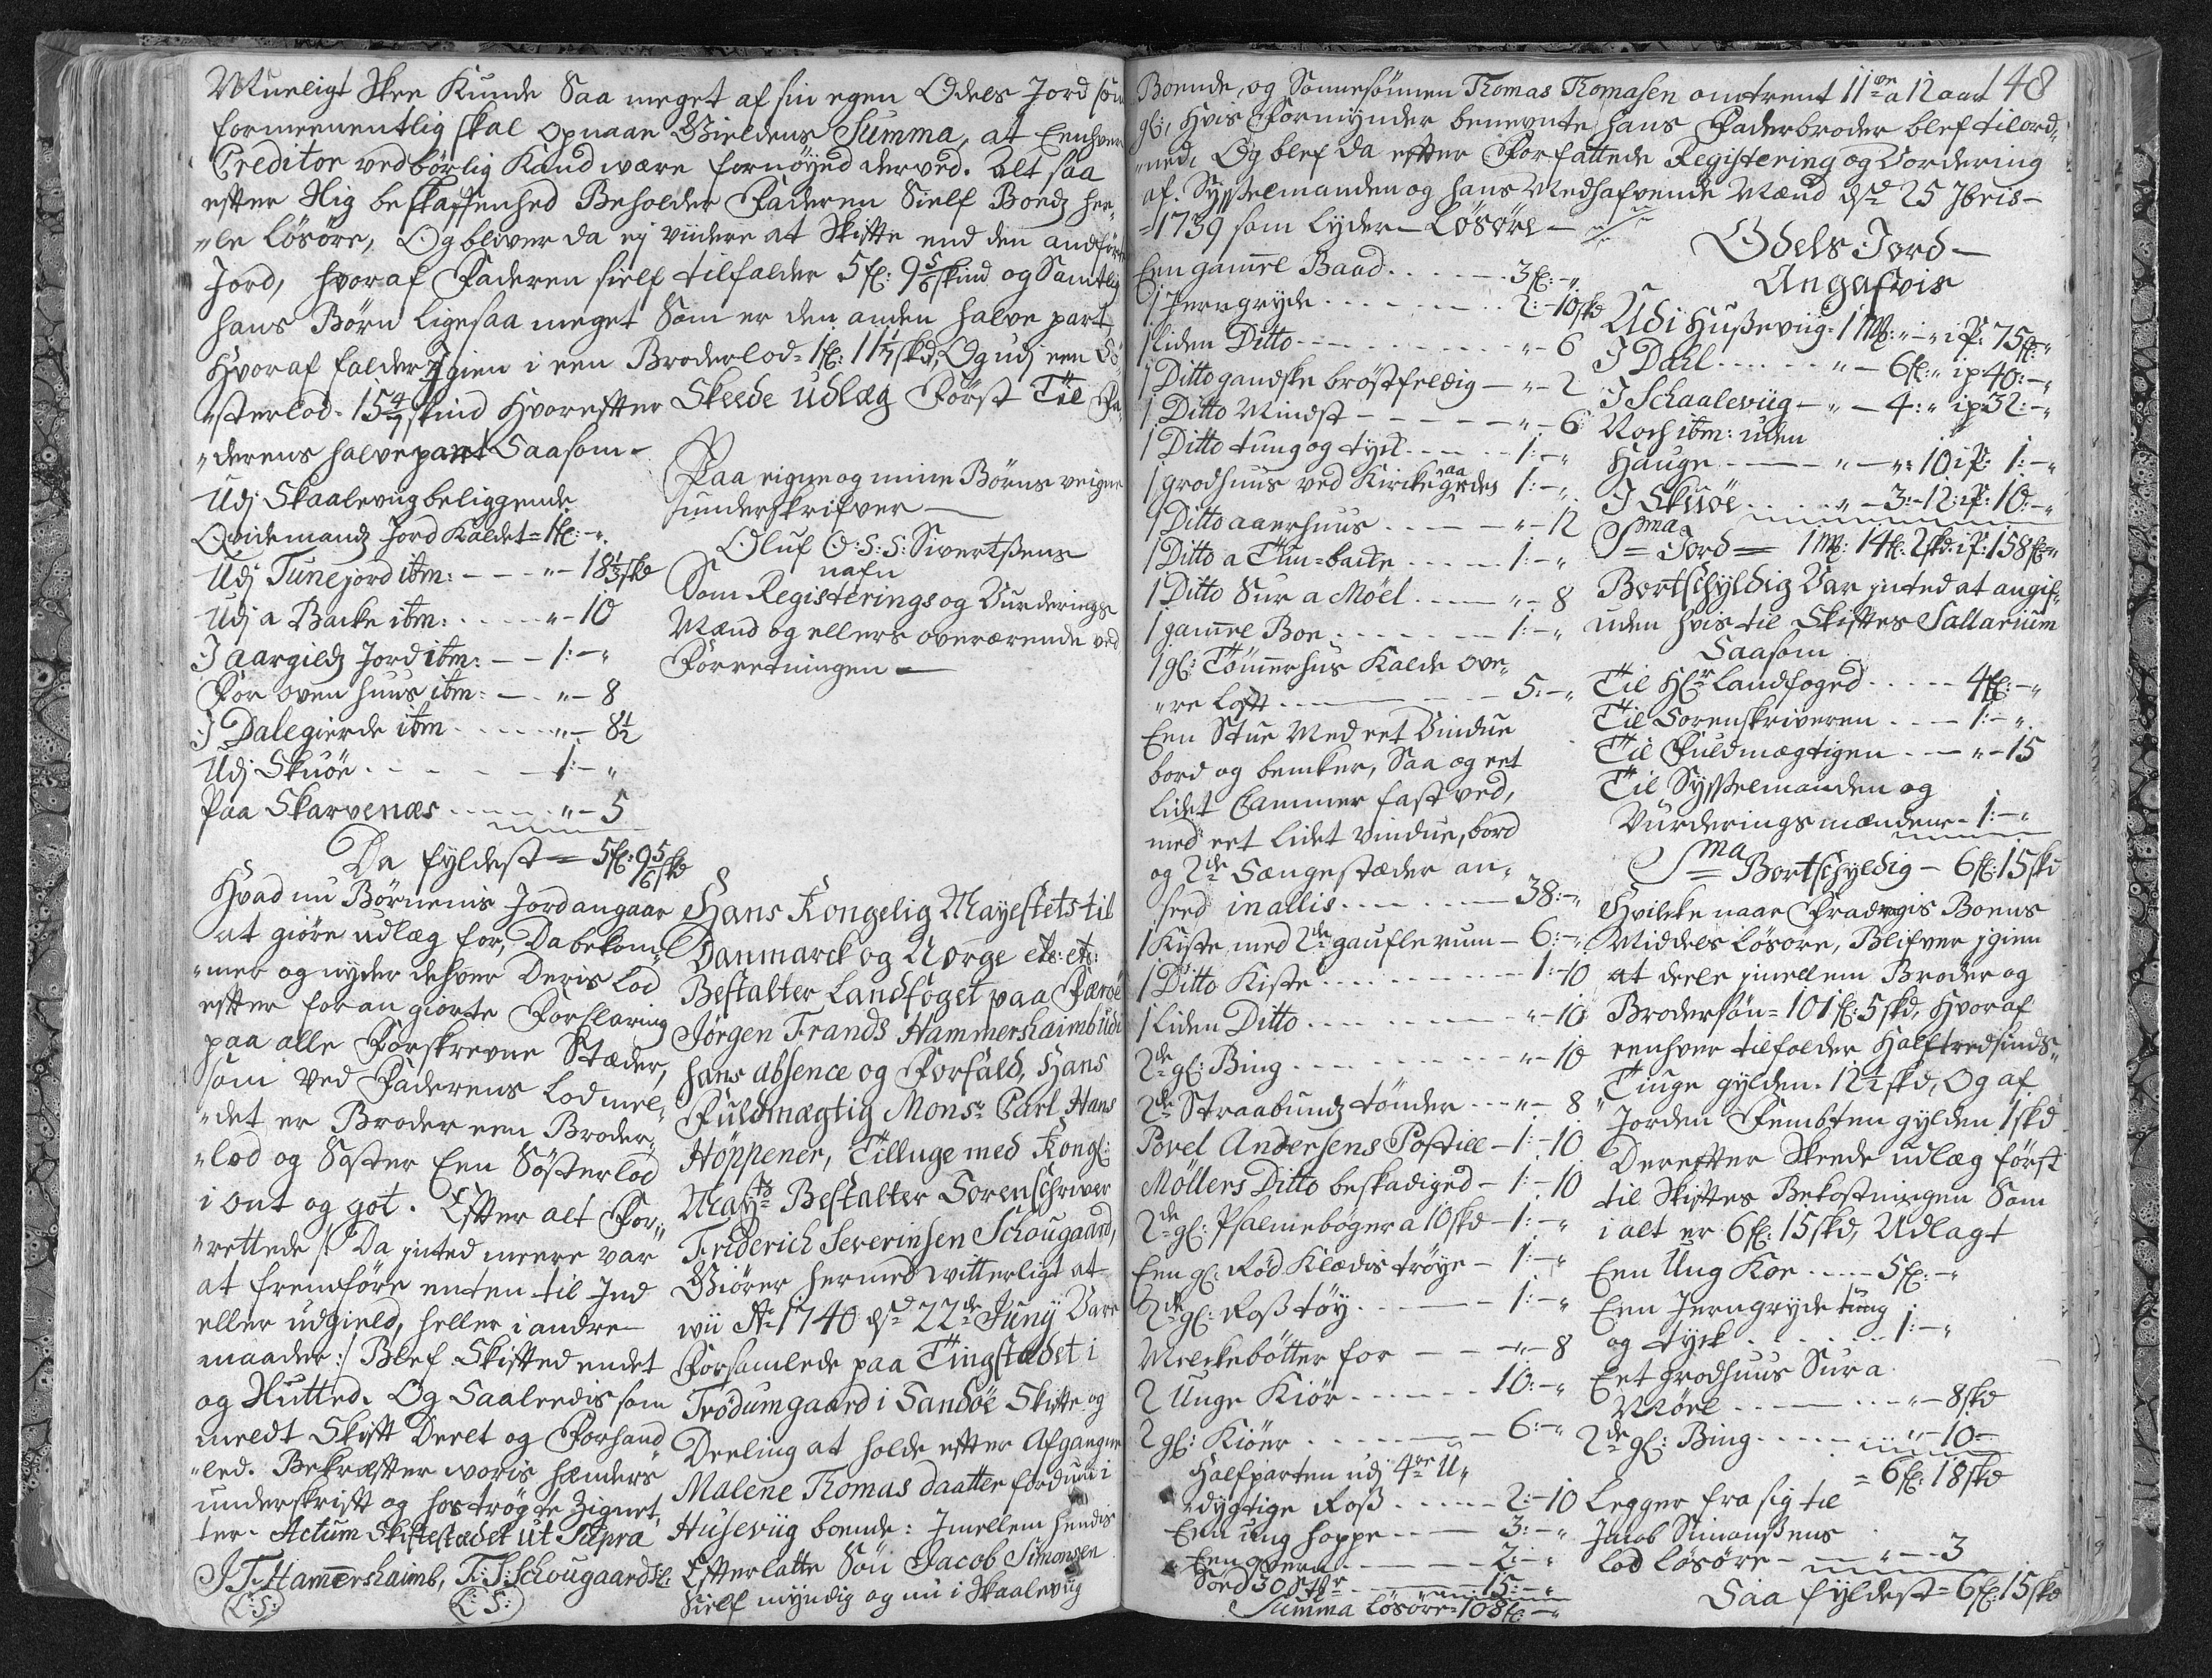 Mueligt Skee Kunde Saa meget af sin egen Odels Jord som
formeenentlig skal opnaae Gieldens Summa, at Eenhver
Creditor vedbörlig Kand være fornöyed derved. Alt saa
efter slig beskaffenhed Beholder Faderen Sielf Boedz hee¬
„le Lösöre, Og bliver da ej viidere at Skifte end den andförte
Jord, hvoraf Faderen sielf tilfalder 5 fl: 9 5/6 skind og Samtlig
hans Börn ligesaa meget Som er den anden halve part,
Hvoraf falder Igien i een Broderlod = 1 fl: 11 1/7 skd, Og udj een Sö„
„sterlod. 15 4/7 skind Hvorefter Skeede Udlæg Först Til Fa„
„derens halve part Saasom-
Udj Skaalevug beliggende
Qvidemandz Jord Kaldet = 1 fl: -„
Udj Tunejord itm: - - - „ - 18 1/3 skd
Udj a Backe itm: . . . . „ - 10
I aargildz Jord itm: - - 1: - „
For oven huus itm: - . „ - 8
I Dalegierde itm . . . . „ - 8 1/2
Udj Skuöe . . - . - 1: - „
Paa Skarvenæs . . . . . „ - 5
Da fyldest = 5 fl: 9 5/6 skd
Hvad nu Börnenis Jord angaar
at giöre udlæg for, Da bekom„
„mer og nyder dehver Deris Lod
efter foran giorte Forklaring
paa alle Forskrevne Stæder,
som ved Faderens Lod mel„
„det er Broder een Broder„
„lod og Söster Een Sösterlod
i ont og got. Efter alt For„
„rettede /: Da inted meere var
at fremföre enten til Ind
eller udgield, heller i andre
maader :/ Blef Skifted endet
og Slutted. Og Saaleedis som
meldt Skift Deelt og Forhand
„led. Bekræfter woris hænders
underskrift og hoströgte Zignet„
ter. Actum Skiftestædet ut Supra
J. F. Hammershaimb, F: S: Schougaard
(L: S:) (L: S:)
Paa eigne og mine Börns veigne
underskrifver —
Oluf O: S: S: Sivertsens
nafn
Som Registerings og Vurderings
Mænd og ellers overværende ved
Forretningen —
Hans Kongelig Mayestets til
Danmarck og Norge etc: etc:
Bestalter Landfoget paa Færöe
Jörgen Frands Hammershaimb udi
hans absence og Forfald, Hans
Fuldmægtig Monsr Carl Hans
Höppener, Tilluge med Kongl:
Mayts Bestalter Sorenschriver
Friderich Severinsen Schougaard,
Giörer hermed witterligt at
wii Ao 1740 dend 22de Juny Vare
Forsamlede paa Tingstædet i
Trödumgaard i Sandöe Skifte og
Deeling at holde efter Afgangne
Malene Thomas daatter fordum i
Husevug boende: Imellem hendis
Efterlatte Sön Jacob Simonsen
Sielf myndig og nu i Skaalevug
148
Boende, og Sonnesönnen Thomas Thomasen omtrent 11ve a 12 aar
gl:, hvis Formynder benevnte hans Faderbroder blef tilord„
„ned. Og blef da efter Forfattede Registering og Vordering
af Sysselmanden og hans Medhafvende Mænd dend 25 Jbris -
=1739 som lyder — Lösöre —
Een gammel Baad . . . . - 3 fl: - „
1 Jerngryde . . . . - . . 2: - 10 skd
1 liden Ditto - - . . . . . „ - 6
1 Ditto gandske bröstfeldig — „ - 2
1 Ditto Mindst - - - - - - „ - 6
1 Ditto tung og tyck - - - - 1: - „
1 grodhuus ved Kirke gaardes 1: - „
1 Ditto aaerhuus . . - - - „ - 12
1 Ditto a Thu=backe . . . - 1: - „
1 Ditto Sur a Möel . . . - „ - 8
1 gammel Boe . . . . - - - 1: - „
1 gl: Tömmerhus Kalde ove„
„re Loft . . - - - - - 5: - „
Een Stue Med eet Vindue
bord og bencker, Saa og eet
lidet Cammer fast ved,
med eet lidet vindue, bord
og 2de Sængestæder an„
seed inallis . . . . - 38: - „
1 Kiste med 2de gaufle rum - 6: - „
1 Ditto Kiste . . . . - - - - 1: - 10
1 liden Ditto . . . . - - - „ - 10
2de gl: Bing . . . - - - „ - 10
2de Straabundz tönder . . . „ - 8
Povel Andersens Postill - 1: - 10
Möllers Ditto beskadiged - 1: - 10
2de gl: Psalmeböger a 10 skd - 1: - „
Een gl: Röd Klædis tröye - 1: - „
2de gl: Roß töy . . . - - - 1: - „
Melckebötter for - - - „ - 8
2 Unge Kiör . . . . . . 10: - „
2 gl: Kiöer . . . . . . - 6: - „
Halfparten udj 4re U„
„dygtige Roß . . . . - 2: - 10
Een ung hoppe . . - - 3: - „
Een qvern . . - - - - 2: - „
Sörd 30 . . . - - 15: - „
Summa Lösöre = 108 fl: - „
Odels Jord —
Angafvis
Udi Hußeviig = 1 Mk: „ - „ i P: 75 fl: „
I Dahl . . . . . „ - 6 fl: „ i p 40: - „
I Schaaleviig - „ - 4: „ i p 32: - „
Noch itm: uden
Hauge . . - - - „ - „: 10 i P: 1: - „
I Skuöe . . . . . „ - 3: - 12: i P: 10: - „
Sma Jord = 1 Mk: 14 fl: 2 skd: i P: 158 fl: „
Bortschyldig Var inted at angif„
uden hvis til Skiftes Sallarium
Saasom
Til Hr Landfoged . . . . . 4 fl: - „
Til Sorenskriveren . . - - 1: - „
Til Fuldmægtigen . . - - „ - 15
Til Sysselmanden og
Vurderingsmændene - 1: - „
Sma Bortschyldig - 6 fl: 15 skd
Hvilcke naar Fradregis Boens
Middels Lösöre, Blifver igien
at deele imellem Broder og
Brodersön = 101 fl: 5 skd, Hvoraf
eenhver tilfalder Halftredsinds„
„Tiuge gylden. 12 1/2 skd, Og af
Jorden Fembten gylden 1 skd
Derefter Skeede udlæg först
til Skiftes Bekostningen Som
i alt er 6 fl: 15 skd, Udlagt
Een Ung Koe . . . - 5 fl: - „
Een Jerngryde tung
og tyck . . . . . . . 1: - „
Eet grodhuus Sur a
Möel . . . - - . . . „ - 8 skd
2de gl: Bing . . . . . „ - 10 =
= 6 fl: 18 skd
Legger fra sig til
Jacob Simonßens
lod Lösöre - . . . „ - 3
Saa fyldest = 6 fl: 15 skd